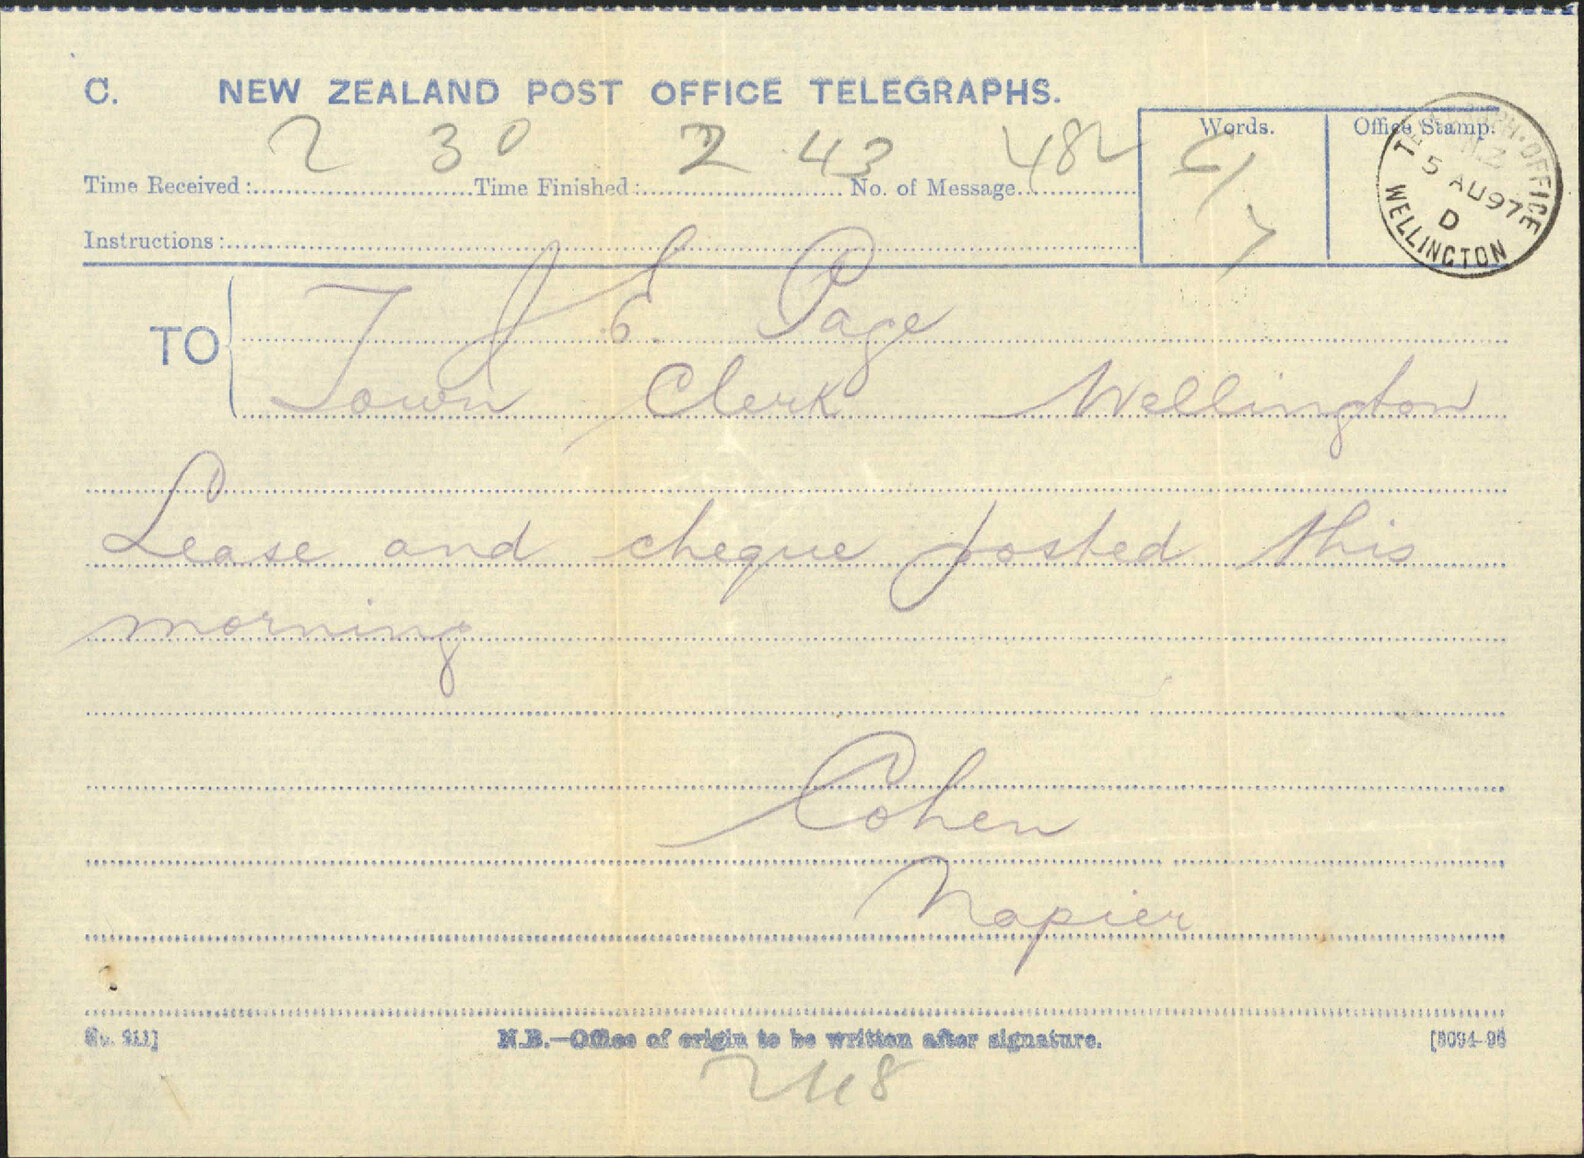 C. NEW ZEALAND POST OFFICE TELEGRAPHS.
Words. Office Stamp.
2 30 2 43 482
Time Received: Time Finished: No. of Message
Instructions:
TELEGRAPH·OFFICE
N.Z
5 AU 97
D
WELLINGTON
7
TO J. E. Page
Town Clerk Wellington
Lease and cheque posted this
morning
Cohen
Napier
No. 211] N.B.—Office of origin to be written after signature. [5094-96